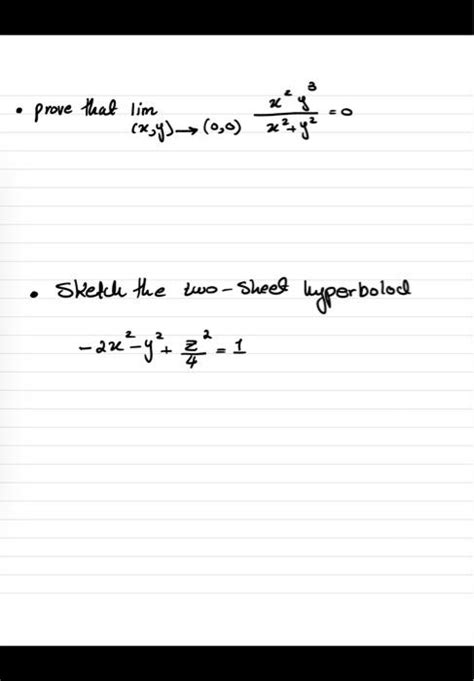 • prove that lim x² y³ / x²+y² = 0
(x,y)→(0,0)
• Sketch the two-sheet hyperbolod
-2x²-y²+ z²/4 = 1